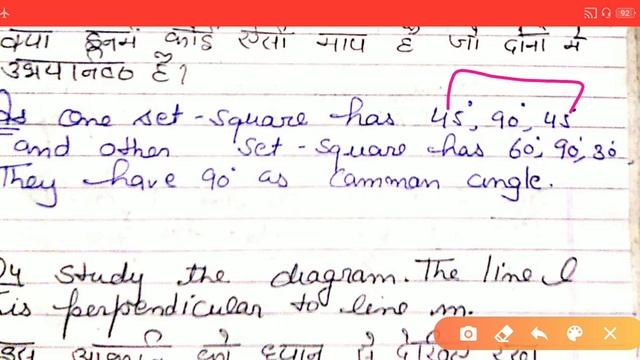 92
क्या इनमें कोई ऐसी माप है जो दोनों में
उभयनिष्ठ है?
As one set-square has 45°, 90°, 45°
and other set-square has 60°, 90°, 30
They have 90° as camman angle.
Q4 Study the diagram. The line l
is perpendicular to line m.
को ध्यान से देखिए रेखा